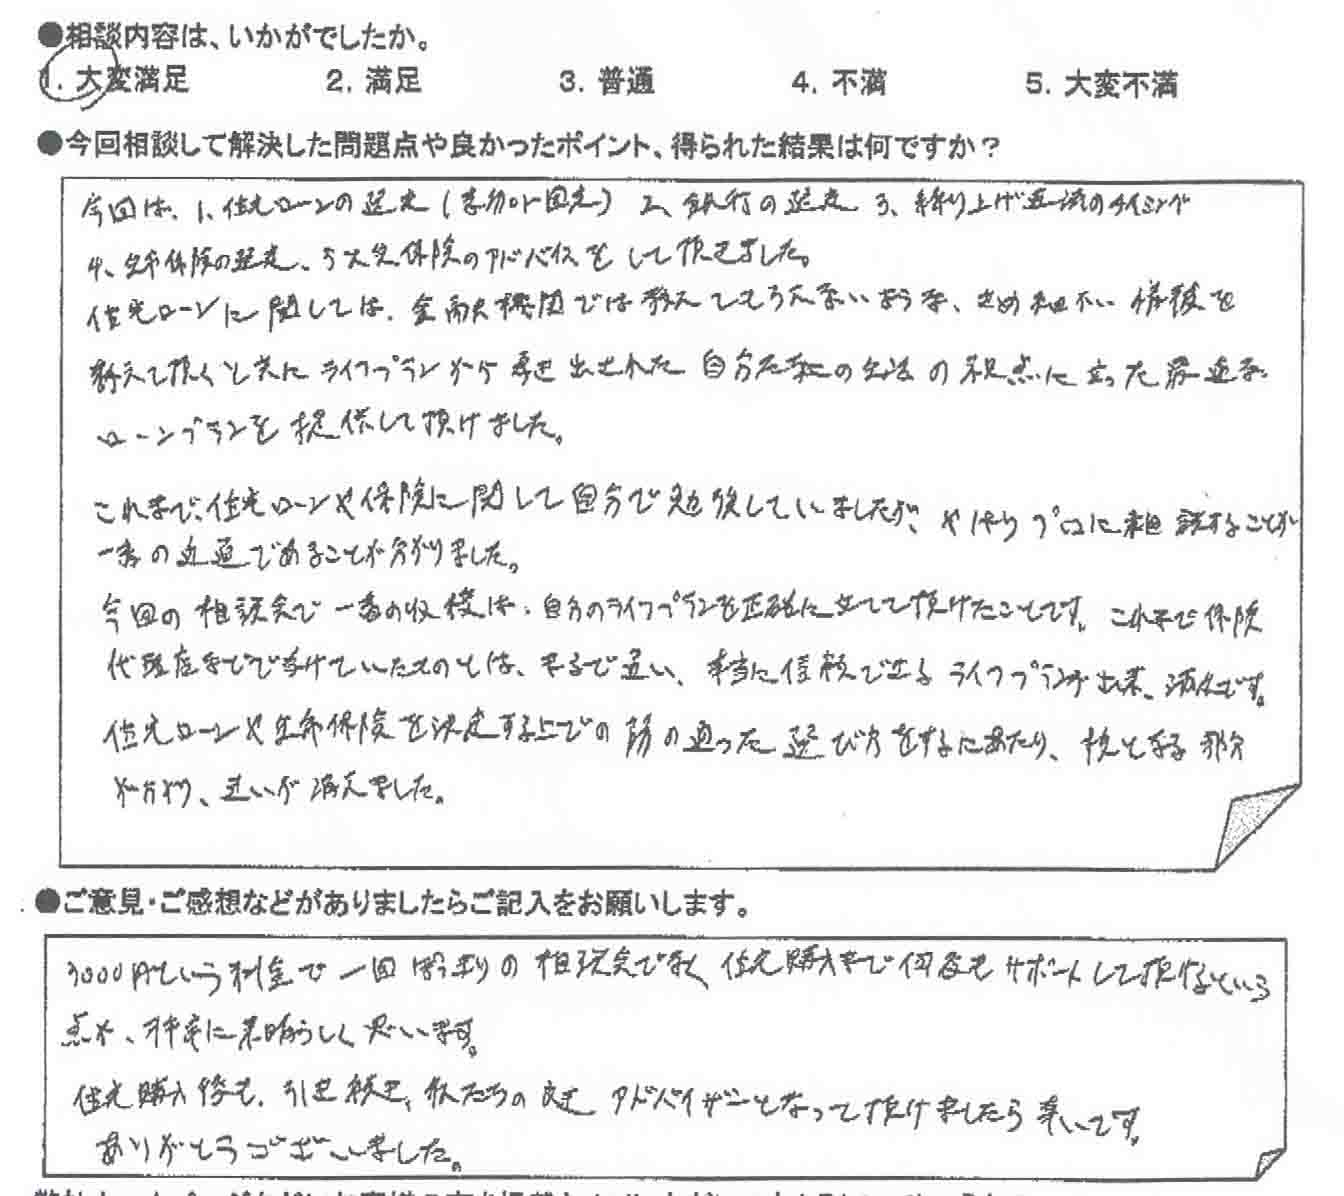 ●相談内容は、いかがでしたか。
1. 大変満足 2. 満足 3. 普通 4. 不満 5. 大変不満
●今回相談して解決した問題点や良かったポイント、得られた結果は何ですか？
今回は、1、住宅ローンの選定（変動or固定） 2、銀行の選定 3、繰り上げ返済のタイミング
4、生命保険の選定、5火災保険のアドバイスをして頂きました。
住宅ローンに関しては、金融機関では教えてもらえないような、きめ細かい情報を
教えて頂くと共にライフプランから導き出された自分たちの生活の視点に立った最適な
ローンプランを提供して頂けました。
これまで、住宅ローンや保険に関して自分で勉強していましたが、やはりプロに相談することが
一番の近道であることが分かりました。
今回の相談会で一番の収穫は、自分のライフプランを正確に立てて頂けたことです。これまで保険
代理店などで受けていたものとは、まるで違い、本当に信頼できるライフプランが出来、満足です。
住宅ローンや生命保険を決定する上での筋の通った選び方をするにあたり、核となる部分
が分かり、迷いが消えました。
●ご意見・ご感想などがありましたらご記入をお願いします。
3000円という料金で一回ぽっきりの相談会でなく住宅購入まで何度もサポートして頂けるという
点が、非常に素晴らしく思います。
住宅購入後も、引き続き、私たちの良きアドバイザーとなって頂けましたら幸いです。
ありがとうございました。